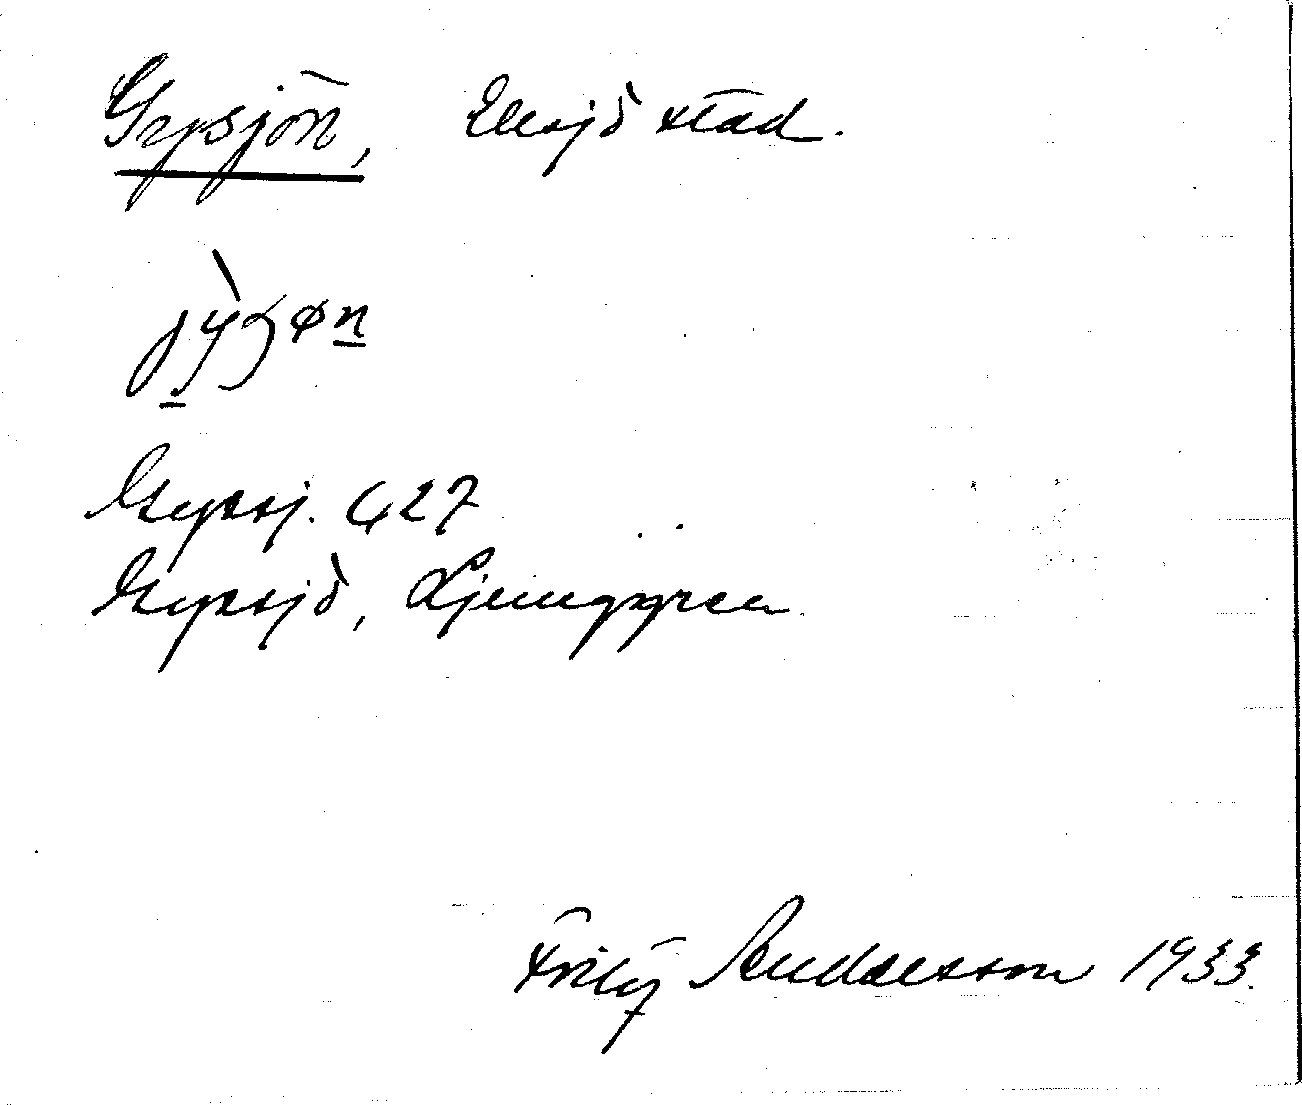 Gypsjön, Ellsjö stad.
Gypsj. G27
Gypsjö, Ljunggren.
Fritz Andersson 1933.